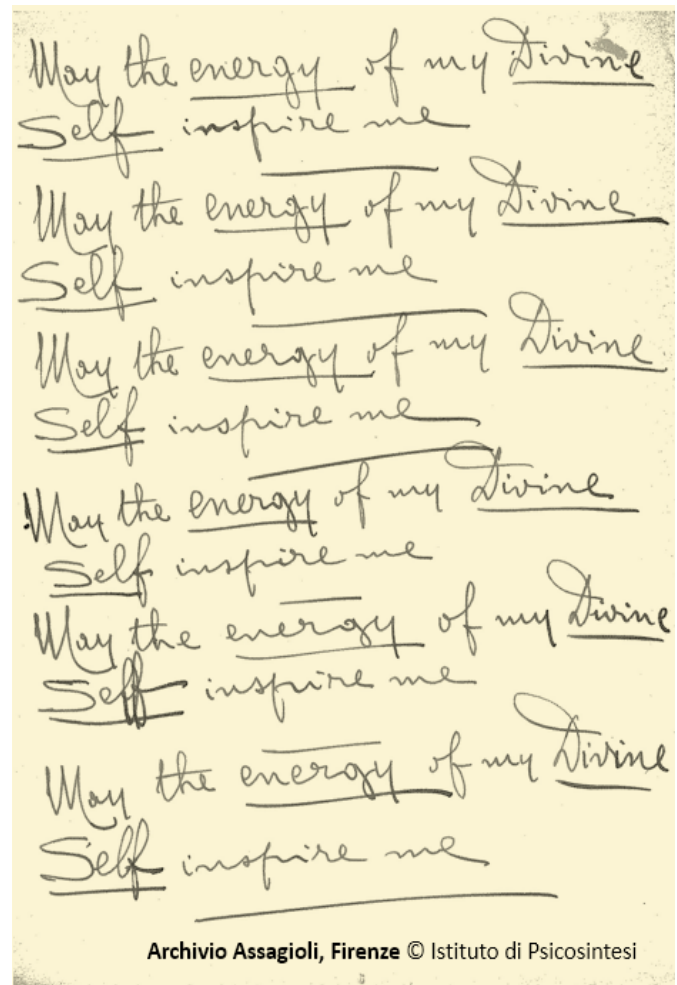 May the energy of my Divine
Self inspire me
May the energy of my Divine
Self inspire me
May the energy of my Divine
Self inspire me
May the energy of my Divine
Self inspire me
May the energy of my Divine
Self inspire me
May the energy of my Divine
Self inspire me
Archivio Assagioli, Firenze © Istituto di Psicosintesi